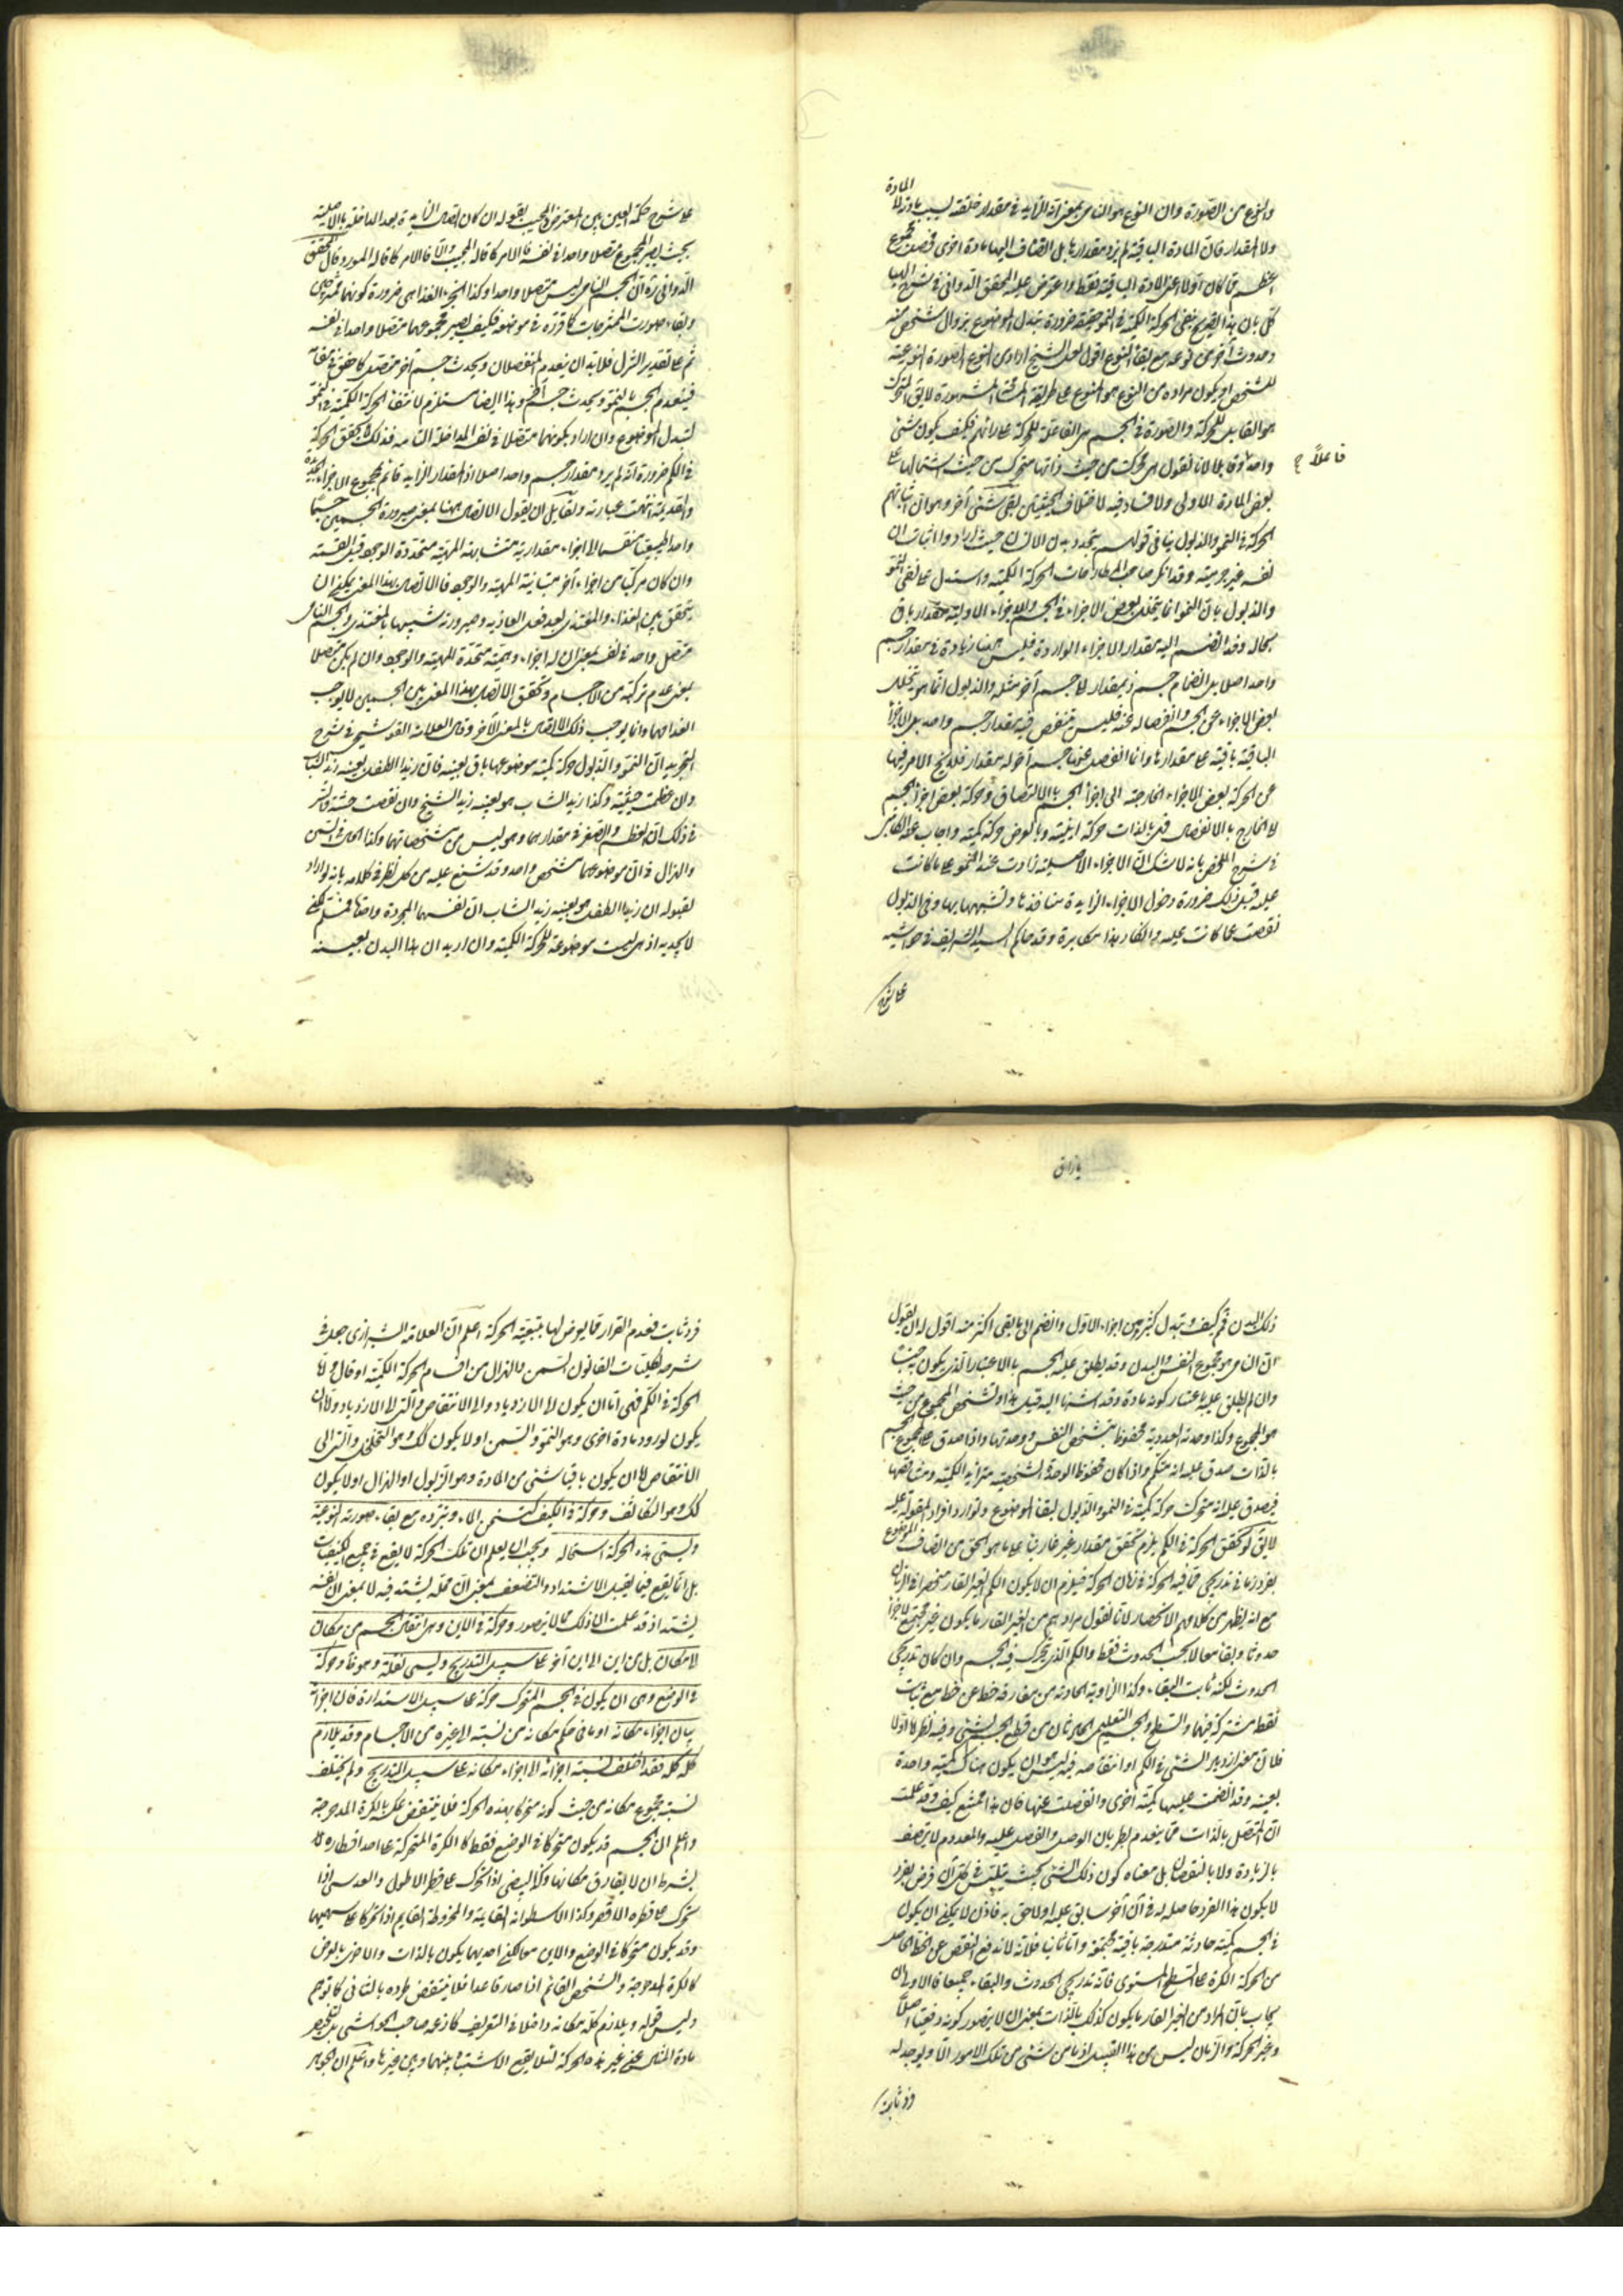 المادة
والنوع من الصورة وان النوع هو النامي بمعنى انه الزايد في مقدار خلقته لسبب مادته لا
ولا المقدار فان المادة الباقية لم يزد مقدارها بل انضاف اليها مادة اخرى فحصل مجموع
اعظم مما كان اولا اعنى المادة الباقية فقط واعترض عليه المحقق الدواني في شرح الهياكل
بان هذا التصريح بنفي الحركة الكمية في النمو حقيقة ضرورة تبدل الموضوع بزوال شخص منه
وحدوث آخر من نوعه مع بقاء النوع اقول لعل الشيخ اراد من النوع الصورة النوعية
للشخص او يكون مراده من النوع هو النوع على طريقة المشهورة لا يق المتحرك
هو القابل للحركة والصورة في الجسم هي الفاعلة للحركة على رائهم فكيف يكون شئ
واحد وقابلا لانا نقول هي محركة من حيث ذاتها متحركة من حيث اشتمالها على
فاعلاً
بعض المادة الاولى ولا فساد فيه لاختلاف الحيثيتين بقى شئ آخر وهو ان اثباتهم
الحركة في النمو والذبول ينافى قولهم بتجدد بدن الانسان حيث ارادوا اثبات ان
نفسه غير جرمية وقد انكر صاحب المطارحات الحركة الكمية واستدل على نفى النمو
والذبول بان النمو انما يتخلل بعض الاجزاء في الجسم والاجزاء الاولية مقدار باق
بحاله وقد انضم اليه مقدار الاجزاء الواردة فليس هنا زيادة في مقدار جسم
واحد اصلا بل انضمام جسم ذي مقدار لا جسم آخر مثله والذبول انما هو بتخلل
بعض الاجزاء عن الجسم وانفصاله عنه فليس تنقص فيه مقدار جسم واحد بل الاجزاء
الباقية باقية على مقدارها وانما انفصل عنها جسم آخر له مقدار فلا يخ الامر فيها
عن الحركة بعض الاجزاء الخارجة الى اجزاء الجسم بالالتصاق وحركة بعض اجزاء الجسم
لا الخارج بالانفصال فهي بالذات حركة اينية وبالعرض حركة كمية واجاب عنه
في شرح الملخص بانه لا شك ان الاجزاء الاصلية زادت عند النمو على ما كانت
عليه قبل ذلك ضرورة دخول الاجزاء الزايدة منافذها وتشبهها بها وفي الذبول
نقصت عما كانت عليه وانكار هذا مكابرة وقد حاكم السيد الشريف في حواشيه
على شرح
على شرح حكمة العين بين المعترض والمجيب بقوله ان كان اتصال الزايدة بعد المداخلة بالاصلية
بحيث يصير المجموع متصلا واحدا في نفسه فالامر كما قاله المجيب والا فالامر كما قاله المورد وقال المحقق
الدواني ره ان الجسم النامي ليس متصلا واحدا وكذا الجزء الغذائى ضرورة كونهما ممتزجين
وبقاء صورت الممتزجات كما قرره في موضعه فكيف يصير مجموعهما متصلا واحدا في نفسه
ثم على تقدير التنزل فلا بد ان ينعدم المنفصلان ويحدث جسم آخر متصل كما حقق في مظانه
فينعدم الجسم بالنمو ويحدث جسم آخر وهذا ايضا مستلزم لانتفاء الحركة الكمية في النمو
لتبدل الموضوع وان اراد بكونهما متصلا في نفسه المداخلة التامة فذلك لا يحقق الحركة
في الكم ضرورة انه لم يزد مقدار جسم واحد اصلا اذ المقدار الزايد قائم بمجموع الاجزاء الجديدة
والقديمة انتهت عبارته ولقايل ان يقول الاتصال ههنا بمعنى صيرورة الجسمين جسما
واحدا طبيعيا منقسما الى اجزاء مقدارية متشابهة المهية متحدة الوجود قبل القسمة
وان كان مركبا من اجزاء اخر متباينة المهية والوجود فالاتصال بهذا المعنى يمكن ان
يتحقق بين الغذاء والمغتذى بعد فعل الغاذية وصيرورته شبيها بالمغتذى والجسم النامى
متصل واحد في نفسه بمعنى ان له اجزاء وهمية متحدة المهية والوجود وان لم يكن متصلا
بمعنى عدم تركبه من الاجسام وتحقق الاتصال بهذا المعنى بين الجسمين لا يوجب
انعدامهما وانما يوجب ذلك الاتصال بالمعنى الآخر وقال العلامة القوشجى في شرح
التجريد ان النمو والذبول حركة كمية موضوعها باق بعينه فان زيدا الطفل بعينه زيد الشاب
وان عظمت جثته وكذا زيد الشاب هو بعينه زيد الشيخ وان نقصت جثته والسر
في ذلك ان العظم والصغر في مقدارهما وهو ليس من مشخصاتهما وكذا الحال في السمن
والهزال فان موضوعهما شخص واحد وقد شنع عليه من كلى نظر في كلامه بانه لو اراد
بقوله ان زيدا الطفل هو بعينه زيد الشاب ان نفسهما المجردة واحدة فمسلم لكن
لا يجديه اذ هي ليست موضوعة للحركة الكمية وان اريد ان هذا البدن بعينه
ذلك البدن فم كيف وتبدل كثير من اجزاء الاول وانضم الى ما بقى اكثر منه اقول له ان يقول
ان النامى هو مجموع النفس والبدن وقد يطلق عليه الجسم بالاعتبار الذى يكون به جنسا
وان لم يطلق عليه باعتبار كونه مادة وقد اشرنا اليه قبيل هذا وتشخص المجموع من حيث
هو المجموع وكذا وحدته العددية محفوظ بتشخص النفس ووحدتها واذا صدق على المجموع الجسم
بالذات صدق عليه انه متكمم واذا كان محفوظ الوحدة الشخصية متزايد الكمية ومتناقصها
فيصدق عليه انه متحرك حركة كمية في النمو والذبول لبقاء الموضوع وتوارد افراد المقولة عليه
لا يق لو تحقق الحركة في الكم يلزم تحقق مقدار غير قار بناء على ما هو الحق من اتصاف الموضوع
بفرد زمانى تدريجى مما فيه الحركة في زمان الحركة فيلزم ان لا يكون الكم الغير القار منحصرا في الزمان
مع انه يظهر من كلامهم الانحصار لانا نقول مرادهم من الغير القار ما يكون غير مجتمع الاجزاء
حدوثا وبقاء معا لا بحسب الحدوث فقط والكم الذى يتحرك فيه الجسم وان كان تدريجى
الحدوث لكنه ثابت البقاء وكذا الزاوية الحادثة من مفارقة خط عن خط مع ثبات
نقطة مشتركة فيهما والسطح والجسم التعليمى الحادثان من قطع الجسم بشئ وفيه نظر اما اولا
فلان معنى ازدياد الشئ في الكم او انتقاصه فيه ليس هو ان يكون هناك كمية واحدة
بعينه وقد انضمت عليها كمية اخرى وانفصلت عنها فان هذا ممتنع كيف وقد علمت
ان المتصل بالذات مما ينعدم بطريان الوصل والفصل عليه والمعدوم لا يتصف
بالزيادة ولا بالنقصان بل معناه كون ذلك الشئ بحيث يتلبس في كل آن فرض بفرد
لا يكون هذا الفرد حاصلا له في آن آخر سابق عليه او لاحق به فاذن لا يمكن ان يكون
في الجسم كمية حادثة متدرجة باقية مجتمعة واما ثانيا فلانه لا يندفع النقض عن الخط الحاصل
من الحركة الكرة على السطح المستوى فانه تدريجى الحدوث والبقاء جميعا فالاولى ان
يجاب بان المراد من الغير القار ما يكون كذلك بالذات بمعنى ان لا يتصور كونه دفعيا اصلا
وغير الحركة والزمان ليس من هذا القبيل اذ ما من شئ من تلك الامور الا ويوجد له
فرد ثابت
فرد ثابت فعدم القرار فيما يعرض لها بتبعية الحركة اعلم ان العلامة الشيرازى جعل في
شرحه لكليات القانون السمن والهزال من اقسام الحركة الكمية اذ قال واما
الحركة في الكم فهى اما ان يكون لا الازدياد والا الانتقاص والتى لا الازدياد والا ان
يكون لورود مادة اخرى وهو النمو والسمن او لا يكون كك وهو التخلخل والتى الى
الانتقاص اما ان يكون باقيا شئ من المادة وهو الذبول او الهزال او لا يكون
كك وهو التكاثف وحركة في الكيف كتسخن الماء وتبرده مع بقاء صورته النوعية
ويسمى هذه الحركة استحالة ويجب ان يعلم ان تلك الحركة لا يقع في جميع الكيفيات
بل انما يقع فيما يقبل الاشتداد والتضعف بمعنى ان محله يشتد فيه لا بمعنى ان نفسه
يشتد اذ قد علمت ان ذلك مما لا يتصور وحركة في الاين وهى انتقال الجسم من مكان
لا مكان بل من اين الى اين آخر على سبيل التدريج ويسمى نقلة وهو ظ وحركة
في الوضع وهى ان يكون في الجسم المتحرك حركة على سبيل الاستدارة فان اجزائه
يباين اجزاء مكانه او ما في حكم مكانه من نسبة لا غيره من الاجسام وقد يلازم
كله كله فقد اختلف نسبة اجزائه الى اجزاء مكانه على سبيل التدريج ولم يختلف
نسبة مجموع مكانه من حيث كونه متحركا بهذه الحركة فلا ينتقض عكسه بالكرة المدحرجة
واعلم ان الجسم قد يكون متحركا في الوضع فقط كالكرة المتحركة على احد اقطاره لا
بشرط ان لا يفارق مكانها وكذا البيضى اذا تحرك على قطره الاطول والعدسى اذا
تحرك على قطره الاقصر وكذا الاسطوانة القايمة والمخروطة القايم اذا تحركا على سهميهما
وقد يكون متحركا في الوضع والاين معا لكن احديهما يكون بالذات والاخرى بالعرض
كالكرة المدحرجة والشخص القائم اذا صار قاعدا فلا ينتقض طرده بالثانى كما توهم
وليس قوله ويلازم كله مكانه داخلا في التعريف كما زعمه صاحب الحواشى بل تحرير
مادة المثال عن غير هذه الحركة لئلا يقع الاشتباه بينهما وبين غيرها واعلم ان الجوهر